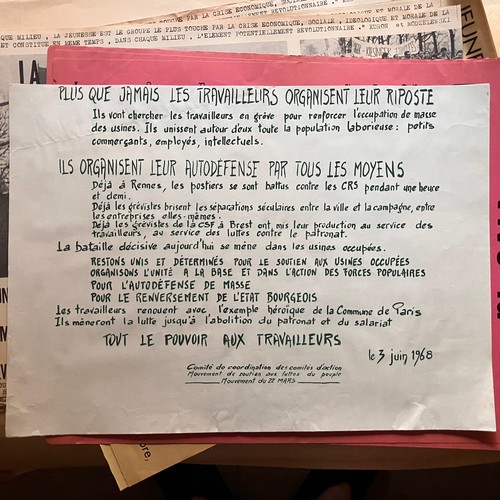 PAR LA CRISE ECONOMIQUE, SOCIALE, IDEOLOGIQUE ET MORALE DE LA
QUE MILIEU, LA JEUNESSE EST LE GROUPE LE PLUS TOUCHE PAR LA CRISE ECONOMIQUE, SOCIALE, IDEOLOGIQUE ET MORALE DE LA
ET CONSTITUE EN MEME TEMPS, DANS CHAQUE MILIEU, L'ELEMENT POTENTIELLEMENT REVOLUTIONNAIRE." KURON et MODZELEWSKI
LA
PLUS QUE JAMAIS LES TRAVAILLEURS ORGANISENT LEUR RIPOSTE
Ils vont chercher les travailleurs en grève pour renforcer l'occupation de masse
des usines. Ils unissent autour d'eux toute la population laborieuse: petits
commerçants, employés, intellectuels.
ILS ORGANISENT LEUR AUTODÉFENSE PAR TOUS LES MOYENS
Déjà à Rennes, les postiers se sont battus contre les CRS pendant une heure
et demi.
Déjà les grévistes brisent les séparations séculaires entre la ville et la campagne, entre
les entreprises elles-mêmes.
Déjà les grévistes de la CSF à Brest ont mis leur production au service des
travailleurs, au service des luttes contre le patronat.
La bataille décisive aujourd'hui se mène dans les usines occupées.
RESTONS UNIS ET DÉTERMINÉS POUR LE SOUTIEN AUX USINES OCCUPÉES
ORGANISONS L'UNITÉ A LA BASE ET DANS L'ACTION DES FORCES POPULAIRES
POUR L'AUTODÉFENSE DE MASSE
POUR LE RENVERSEMENT DE L'ÉTAT BOURGEOIS
Les travailleurs renouent avec l'exemple héroïque de la Commune de Paris
Ils mèneront la lutte jusqu'à l'abolition du patronat et du salariat
TOUT LE POUVOIR AUX TRAVAILLEURS
le 3 juin 1968
Comité de coordination des comités d'action
Mouvement de soutien aux luttes du peuple
Mouvement du 22 MARS